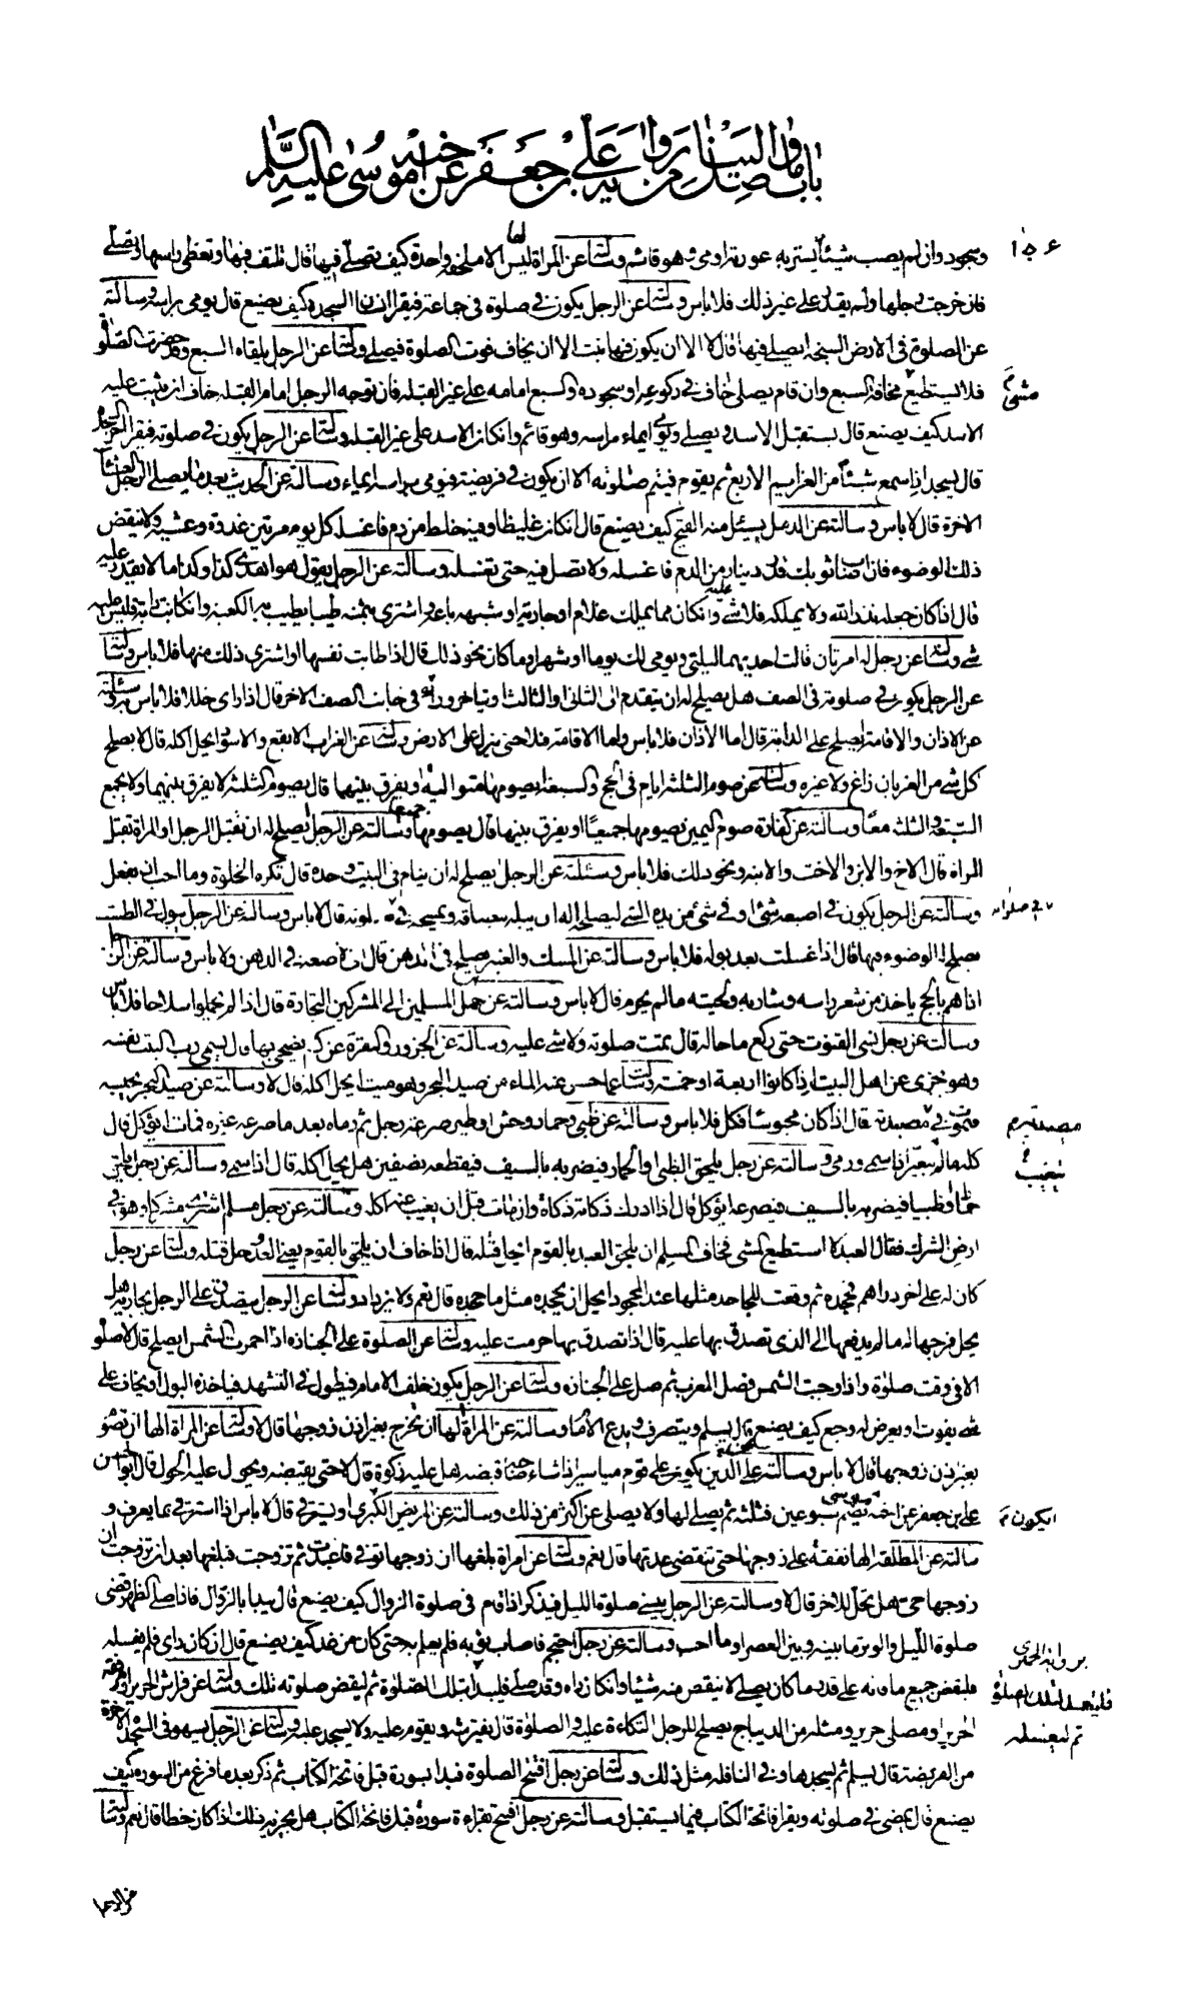 باب ما وصل الينا من رواية علي بن جعفر عن اخيه موسى عليه السلام
وسجود وان لم يصب شيئا يستر به عورته اومئ وهو قائم وسالته عن المراة ليس لها الا ملحفة واحدة كيف تصلي فيها قال تلتف فيها وتغطي راسها وتصلي
فان خرجت رجلها ولم يقدر على غير ذلك فلا باس وسالته عن الرجل يكون في صلوة في جماعة فيقرا انسان السجدة كيف يصنع قال يومي براسه وسالته
عن الصلوة في الارض السبخة ايصلي فيها قال لا الا ان يكون فيها نبت الا ان يخاف فوت الصلوة فيصلي وسالته عن الرجل يلقاه السبع وقد حضرت الصلوة
فلا يستطيع مخافة السبع وان قام يصلي خاف في ركوعه او سجوده والسبع امامه على غير القبلة فان توجه الرجل امام القبلة خاف ان يثب عليه
الاسد كيف يصنع قال يستقبل الاسد ويصلي ويومي ايماء براسه وهو قائم وان كان الاسد على غير القبلة وسالته عن الرجل يكون في صلوته فيقرا اخر السجدة
قال يسجد اذا سمع شيئا من العزايم الاربع ثم يقوم فيتم صلوته الا ان يكون في فريضة فيومي براسه ايماء وسالته عن الحديث بعد ما يصلي الرجل العشاء
الاخرة قال لا باس وسالته عن الدمل يسيل منه القيح كيف يصنع قال ان كان غليظا او فيه خلط من دم فاغسله كل يوم مرتين غدوة وعشية ولا ينقض
ذلك الوضوء فان اصاب ثوبك قدر دينار من الدم فاغسله ولا تصل فيه حتى تغسله وسالته عن الرجل يقول هو اهدى كذا وكذا ما لا يقدر عليه
قال اذا كان جعله نذرا لله ولا يملكه فلا شي عليه وان كان مما يملك غلام او جارية او شبهه باعه واشترى بثمنه طيبا يطيب به الكعبة وان كانت دابة فليس عليه
شي وسالته عن رجل له امرتان قالت احديهما ليلتي ويومي لك يوما او شهرا وما كان نحو ذلك قال اذا طابت نفسها او اشترى ذلك منها فلا باس وسالته
عن الرجل يكون في صلوته في الصف هل يصلح له ان يتقدم الى الثاني والثالث او يتاخر وراءه في جانب الصف الاخر قال اذا راى خللا فلا باس به وسالته
عن الاذان والاقامة ايصلح على الدابة قال اما الاذان فلا باس واما الاقامة فلا حتى ينزل على الارض وسالته عن الغراب الابقع والاسود ايحل اكله قال لا يصلح
كل شي من الغربان زاغ ولا غيره وسالته عن صوم الثلثة ايام في الحج والسبعة ايصومها متوالية او يفرق بينها قال يصوم الثلثة لا يفرق بينها ولا يجمع
السبعة والثلثة معا وسالته عن كفارة صوم اليمين يصومها جميعا او يفرق بينها قال يصومها جميعا وسالته عن الرجل ايصلح له ان يقبل الرجل او المراة تقبل
المراة قال الاخ والابن والاخت والابنة ونحو ذلك فلا باس وسالته عن الرجل يصلح له ان ينام في البيت وحده قال تكره الخلوة وما احب ان يفعل
وسالته عن الرجل يكون في اصبعه شئ او في شئ من يده الشئ ليصلحه له ان يبله ببصاقه ويمسحه في صلوته قال لا باس وسالته عن الرجل يبول في الطست
يصلح له الوضوء فيها قال اذا غسلت بعد بوله فلا باس وسالته عن المسك والعنبر يصلح في الدهن قال اني لاصنعه في الدهن ولا باس وسالته عن الرجل
اذا هم بالحج ياخذ من شعر راسه وشاربه ولحيته ما لم يحرم قال لا باس وسالته عن حمل المسلمين الى المشركين التجارة قال اذا لم يحملوا سلاحا فلا باس
وسالته عن رجل نسى القنوت حتى ركع ما حاله قال تمت صلوته ولا شي عليه وسالته عن الجزور والبقرة عن كم يضحي بها قال يسمي رب البيت نفسه
وهو يجزي عن اهل البيت اذا كانوا اربعة او خمسة وسالته عما حسر عنه الماء من صيد البحر وهو ميت ايحل اكله قال لا وسالته عن صيد البحر يحبسه
فيموت في مصيدته قال اذا كان محبوسا فكل فلا باس وسالته عن ظبي وحمار وحش او طير صرعه رجل ثم رماه بعد ما صرعه غيره فمات ايؤكل قال
كله ما لم يتغيب اذا سمى ورمى وسالته عن رجل يلحق الظبي او الحمار فيضربه بالسيف فيقطعه نصفين هل يحل اكله قال اذا سمى وسالته عن رجل يلحق
حمارا وظبيا فيضربه بالسيف فيصرعه ايؤكل قال اذا ادرك ذكاته ذكاه وان مات قبل ان يغيب عنه اكله وسالته عن رجل مسلم اشترى مشركا وهو في
ارض الشرك فقال العبد لا استطيع المشى فخاف المسلم ان يلحق العبد بالقوم ايحل قتله قال اذا خاف ان يلحق بالقوم يعني العدو حل قتله وسالته عن رجل
كان له على اخر دراهم فجحده ثم وقعت للجاحد مثلها عند المجحود ايحل ان يجحده مثل ما جحده قال نعم ولا يزداد وسالته عن الرجل يتصدق على الرجل بجارية هل
يحل فرجها له ما لم يدفعها الى الذي تصدق بها عليه قال اذا تصدق بها حرمت عليه وسالته عن الصلوة على الجنازة اذا احمرت الشمس ايصلح قال لا صلوة
الا في وقت صلوة واذا وجبت الشمس فصل المغرب ثم صل على الجنازة وسالته عن الرجل يكون خلف الامام فيطول في التشهد فياخذه البول او يخاف على
شي يفوت او يعرض له وجع كيف يصنع قال يسلم وينصرف ويدع الامام وسالته عن المراة الها ان تخرج بغير اذن زوجها قال لا وسالته عن المراة الها ان تصوم
بغير اذن زوجها قال لا باس وسالته عن الدين يكون على قوم مياسير اذا شاء صاحبه قبضه هل عليه زكوة قال لا حتى يقبضه ويحول عليه الحول قال ابو الحسن
علي بن جعفر عن اخيه موسى يضم سبوعين فثلثة ثم يصلي لها ولا يصلي عن اكثر من ذلك وسالته عن المريض
سالته عن المطلقة الها نفقة على زوجها حتى تنقضي عدتها قال نعم وسالته عن امراة بلغها ان زوجها توفي فاعتدت ثم تزوجت فبلغها بعد ان تزوجت ان
زوجها حي هل تحل للاخر قال لا وسالته عن الرجل ينسى صلوة الليل فيذكر اذا قام في صلوة الزوال كيف يصنع قال يبدا بالزوال فاذا صلى الظهر قضى
صلوة الليل والوتر ما بينه وبين العصر او ما احب وسالته عن رجل احتجم فاصاب ثوبه فلم يعلم به حتى كان من غد كيف يصنع قال ان كان راى فلم يغسله
فليقض جميع ما فاته على قدر ما كان يصلي لا ينقص منه شيئا وان كان راه وقد صلى فليبدا بتلك الصلوة ثم ليقض صلوته تلك وسالته عن فراش الحرير او مرفقة
الحرير او مصلى حرير ومثله من الديباج يصلح للرجل التكاءة عليه والصلوة قال يفترشه ويقوم عليه ولا يسجد عليه وسالته عن الرجل يسهو في السجدة الاخرة
من الفريضة قال يسلم ثم يسجدها وفي النافلة مثل ذلك وسالته عن رجل افتتح الصلوة فبدا بسورة قبل فاتحة الكتاب ثم ذكر بعد ما فرغ من السورة كيف
يصنع قال يمضي في صلوته ويقرا فاتحة الكتاب فيما يستقبل وسالته عن رجل افتتح بقراءة سورة قبل فاتحة الكتاب هل يجزيه ذلك اذا كان خطا قال نعم وسالته